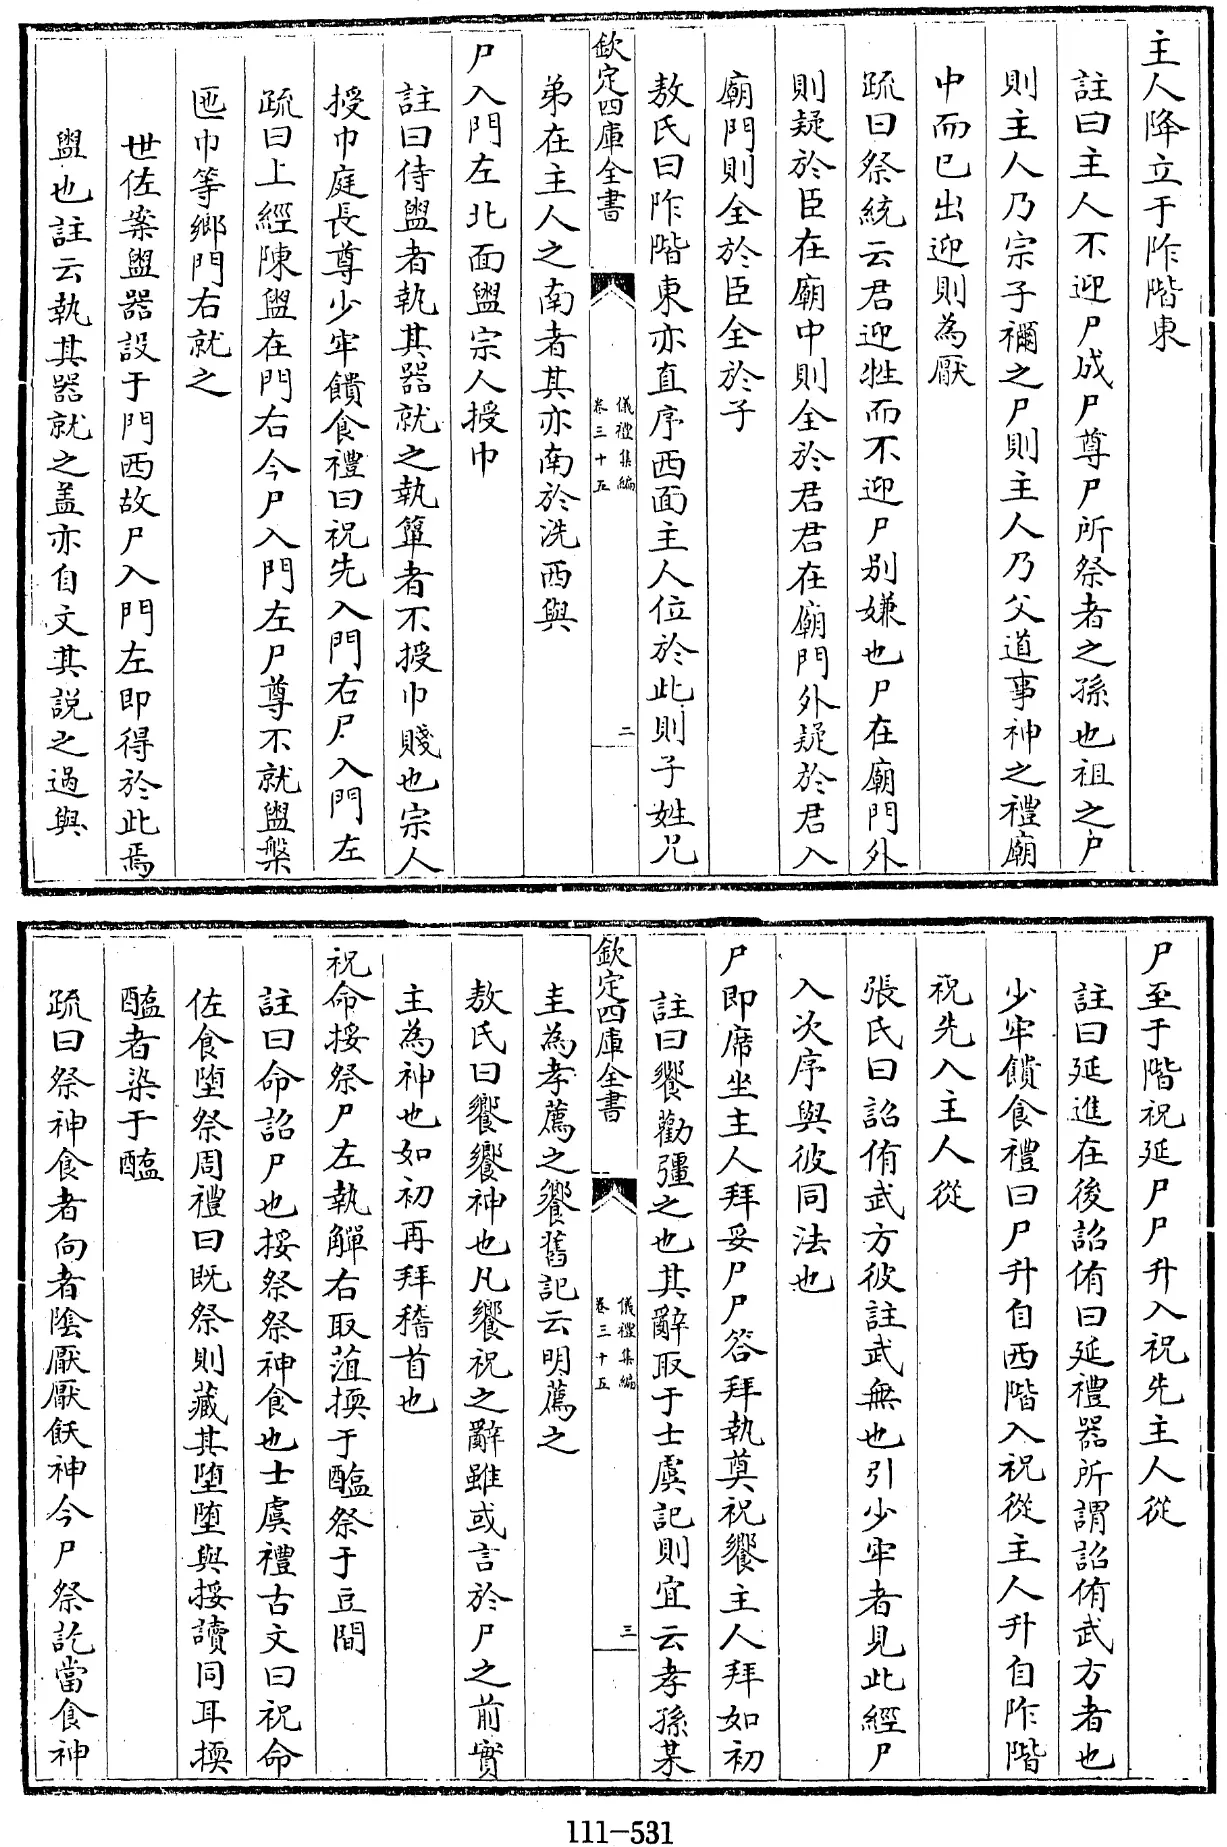 主人降立于阼階東
註曰主人不迎尸成尸尊尸所祭者之孫也祖之尸
則主人乃宗子禰之尸則主人乃父道事神之禮廟
中而已出迎則為厭
疏曰祭統云君迎牲而不迎尸别嫌也尸在廟門外
則疑於臣在廟中則全於君君在廟門外疑於君入
廟門則全於臣全於子
敖氏曰阼階東亦直序西面主人位於此則子姓兄
欽定四庫全書
儀禮集編
卷三十五
二
弟在主人之南者其亦南於洗西與
尸入門左北面盥宗人授巾
註曰侍盥者執其器就之執簞者不授巾賤也宗人
授巾庭長尊少牢饋食禮曰祝先入門右尸入門左
疏曰上經陳盥在門右今尸入門左尸尊不就盥槃
匜巾等鄉門右就之
世佐案盥器設于門西故尸入門左即得於此焉
盥也註云執其器就之盖亦自文其説之過與
尸至于階祝延尸尸升入祝先主人從
註曰延進在後詔侑曰延禮器所謂詔侑武方者也
少牢饋食禮曰尸升自西階入祝從主人升自阼階
祝先入主人從
張氏曰詔侑武方彼註武無也引少牢者見此經尸
入次序與彼同法也
尸即席坐主人拜妥尸尸答拜執奠祝饗主人拜如初
註曰饗勸彊之也其辭取于士虞記則宜云孝孫某
欽定四庫全書
儀禮集編
卷三十五
三
圭為孝薦之饗舊記云明薦之
敖氏曰饗饗神也凡饗祝之辭雖或言於尸之前實
主為神也如初再拜稽首也
祝命挼祭尸左執觶右取菹擩于醢祭于豆間
註曰命詔尸也挼祭祭神食也士虞禮古文曰祝命
佐食墮祭周禮曰既祭則藏其墮墮與挼讀同耳擩
醢者染于醢
疏曰祭神食者向者陰厭厭飫神今尸祭訖當食神
111-531